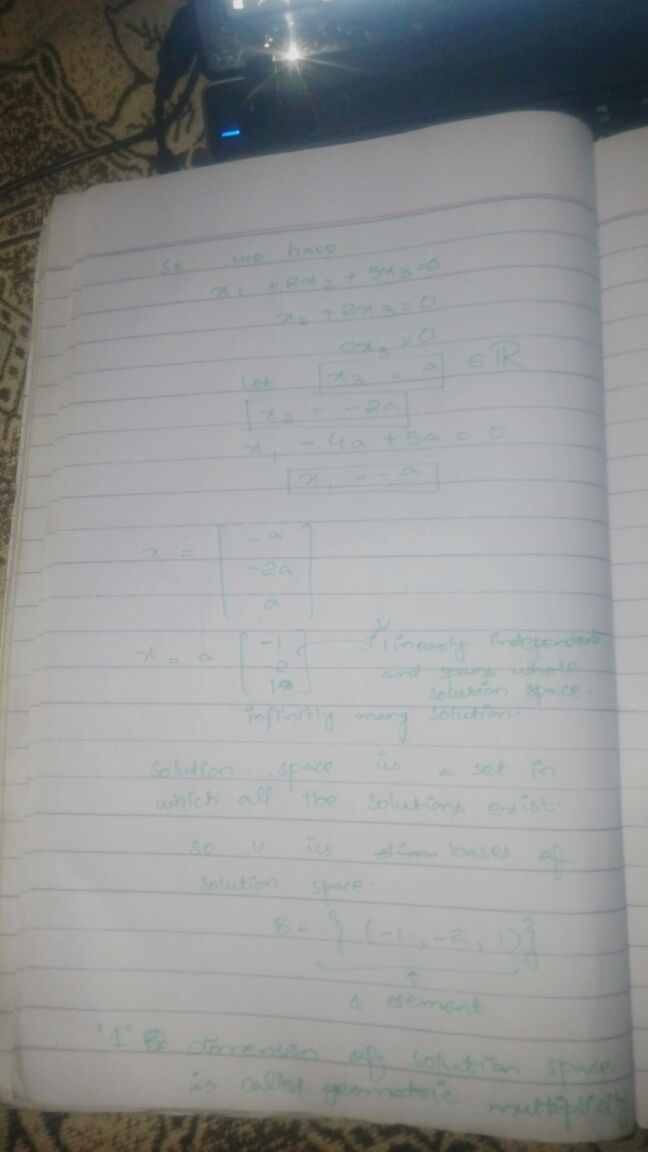 so we have
x₁ + 2x₂ + 5x₃ = 0
x₂ + 2x₃ = 0
0x₃ = 0
Let x₃ = a ∈ ℝ
x₂ = -2a
x₁ - 4a + 5a = 0
x₁ = -a
x = [ -a
-2a
a ]
x = a [ -1
-2
1 ] → v
linearly independent
and spans whole
solution space.
infinitly many solution.
solution space is a set in
which all the solutions exist.
so v is bases of
solution space.
B = { (-1, -2, 1) }
↑
1 element
"1" dimension of solution space
is called geometric multiplicity